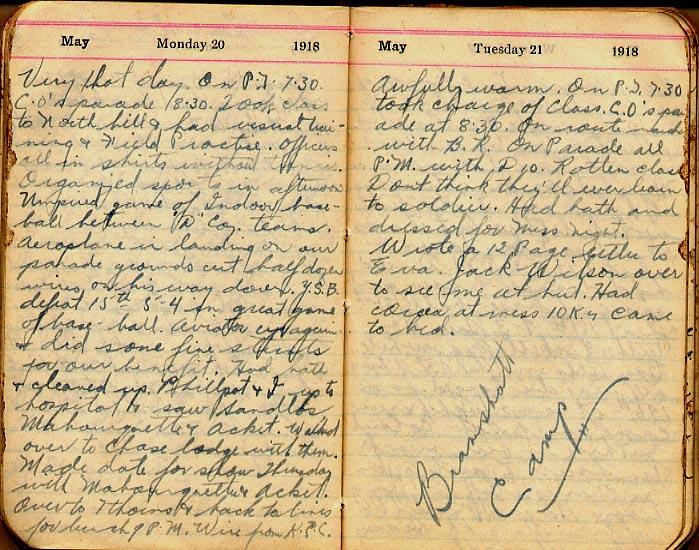 May Monday 20 1918
Very hot day. On P.T. 7.30.
C.O's parade 8:30. Took class
to North hill & had visual trai-
ning & Field Practise. Officers
all in shirts without tunics.
Organized sports in afternoon
Umpired game of Indoor base-
ball between "A" Coy. teams.
Aeroplane in landing on our
parade grounds cut half dozen
wires on his way down. Y.S.B.
defeat 15th 5-4 in great game
of base-ball. Aviator up again
& did some fine stunts
for our benefit. Had bath
& cleaned up. Phillpot & I up to
hospital & saw
& Acket. Walked
over to Chase lodge with them.
Made date for show Thursday
with & Acket.
Over to & back to lines
for lunch 9 P.M. Wire from
May Tuesday 21 1918
Awfully warm. On P.T. 7.30
took charge of Class. C.O's par-
ade at 8:30. On route march
with B.R. On Parade all
P.M. with D 10. Rotten class
Dont think they'll ever learn
to soldier. Had bath and
dressed for Mess night.
Wrote a 12 Page letter to
Eva. Jack Wilson over
to see me at hut. Had
cocoa at mess 10K & came
to bed.
Bramshott
Camp